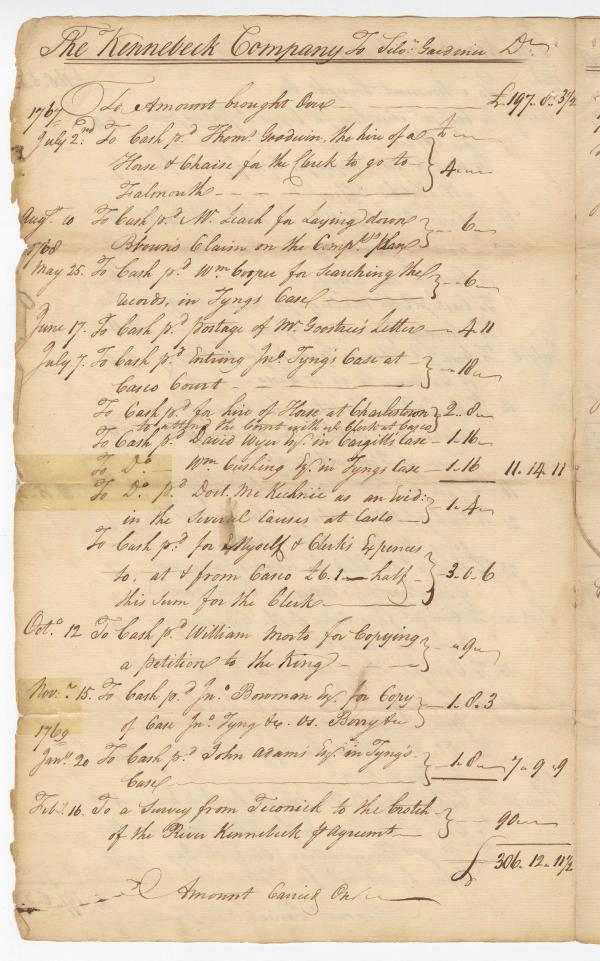 The Kennebeck Company To Silvr. Gardiner Dr
To Amount brought Over £197. 8. 3 1/2
1767
July 2nd. To Cash pd. Thoms. Goodwin, the hire of a
Horse & Chaise for the Clerk to go to } 4
Falmouth
Augt. 10 To Cash pd. Mr. Leach for Laying down
Brown's Claim on the Compys. plan } 6
1768
May 25. To Cash pd. Wm. Cooper for Searching the
records, in Tyngs Case } 6
June 17. To Cash pd. postage of Mr. Goostree's Letter 4. 11
July 7. To Cash pd. Entring Jno. Tyng's Case at
Casco Court } 18
To Cash pd. for hire of Horse at Charlestown } 2. 8
to attend the Court with ye Clerk at Casco
To Cash pd. David Wyer Esq. in Cargill's Case 1. 16
To Do. Wm. Cushing Esq. in Tyngs Case 1. 16 11. 14. 11
To Do. pd. Doct. McKechnie as an Evid:
in the Several Causes at Casco } 1. 4
To Cash pd. for Myself & Clerk's Expences
to, at & from Casco £6. 1 half } 3. 0. 6
this Sum for the Clerk
Octo. 12 To Cash pd. William Morto for Copying
a petition to the King } 9
Novr. 15. To Cash pd. Jno. Bowman Esq. for Copy
of Case Jno. Tyng &c. vs. Berry &c } 1. 8. 3
1769
Jany. 20 To Cash pd. John Adams Esq. in Tyng's
Case } 1. 8 7. 9. 9
Feby. 16. To a Survey from Teconick to the Crotch
of the River Kennebeck pr Agreemt. } 90
£ 306. 12. 11 1/2
Amount Carried Over